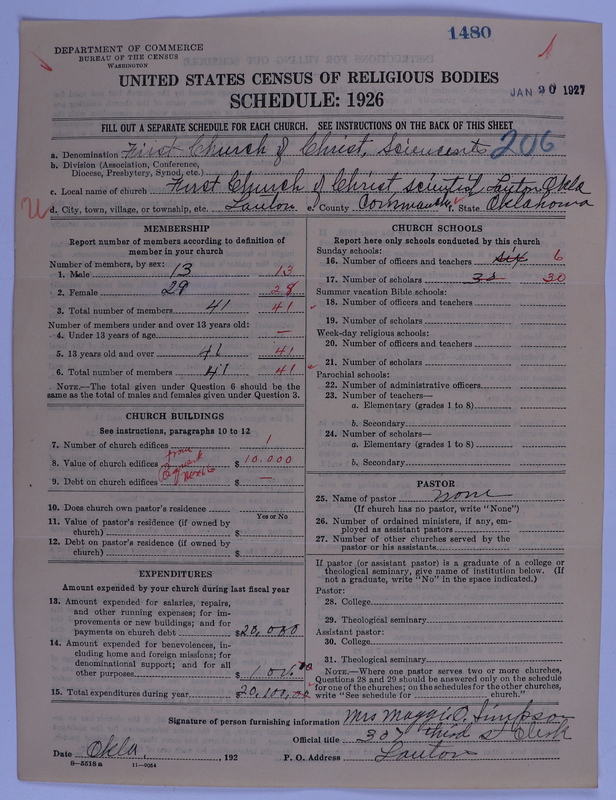 1480
DEPARTMENT OF COMMERCE
BUREAU OF THE CENSUS
WASHINGTON
UNITED STATES CENSUS OF RELIGIOUS BODIES
SCHEDULE: 1926
JAN 20 1927
FILL OUT A SEPARATE SCHEDULE FOR EACH CHURCH. SEE INSTRUCTIONS ON THE BACK OF THIS SHEET
a. Denomination First Church of Christ, Scientist 206
b. Division (Association, Conference, Diocese, Presbytery, Synod, etc.)
c. Local name of church First Church of Christ scientist Lawton Okla
d. City, town, village, or township, etc. Lawton e. County Commanche f. State Oklahoma
MEMBERSHIP
Report number of members according to definition of member in your church
Number of members, by sex:
1. Male 13 13
2. Female 29 28
3. Total number of members 41 41
Number of members under and over 13 years old:
4. Under 13 years of age —
5. 13 years old and over 41 41
6. Total number of members 41 41
NOTE.—The total given under Question 6 should be the same as the total of males and females given under Question 3.
CHURCH BUILDINGS
See instructions, paragraphs 10 to 12
7. Number of church edifices 1
8. Value of church edifices $10.000
9. Debt on church edifices $ —
from
10. Does church own pastor's residence
Yes or No
11. Value of pastor's residence (if owned by church) $
12. Debt on pastor's residence (if owned by church) $
EXPENDITURES
Amount expended by your church during last fiscal year
13. Amount expended for salaries, repairs, and other running expenses; for improvements or new buildings; and for payments on church debt $20,000
14. Amount expended for benevolences, including home and foreign missions; for denominational support; and for all other purposes
15. Total expenditures during year $20,100.00
CHURCH SCHOOLS
Report here only schools conducted by this church
Sunday schools:
16. Number of officers and teachers six 6
17. Number of scholars 30 30
Summer vacation Bible schools:
18. Number of officers and teachers
19. Number of scholars
Week-day religious schools:
20. Number of officers and teachers
21. Number of scholars
Parochial schools:
22. Number of administrative officers
23. Number of teachers—
a. Elementary (grades 1 to 8)
b. Secondary
24. Number of scholars—
a. Elementary (grades 1 to 8)
b. Secondary
PASTOR
25. Name of pastor none
(If church has no pastor, write "None")
26. Number of ordained ministers, if any, employed as assistant pastors
27. Number of other churches served by the pastor or his assistants
If pastor (or assistant pastor) is a graduate of a college or theological seminary, give name of institution below. (If not a graduate, write "No" in the space indicated.)
Pastor:
28. College
29. Theological seminary
Assistant pastor:
30. College
31. Theological seminary
NOTE.—Where one pastor serves two or more churches, Questions 28 and 29 should be answered only on the schedule for one of the churches; on the schedules for the other churches, write "See schedule for church."
Signature of person furnishing information Mrs Maggie O. Simpson
Official title 307 third st Clerk
Date Okla, , 192 P. O. Address Lawton
8-5518a 11-9054